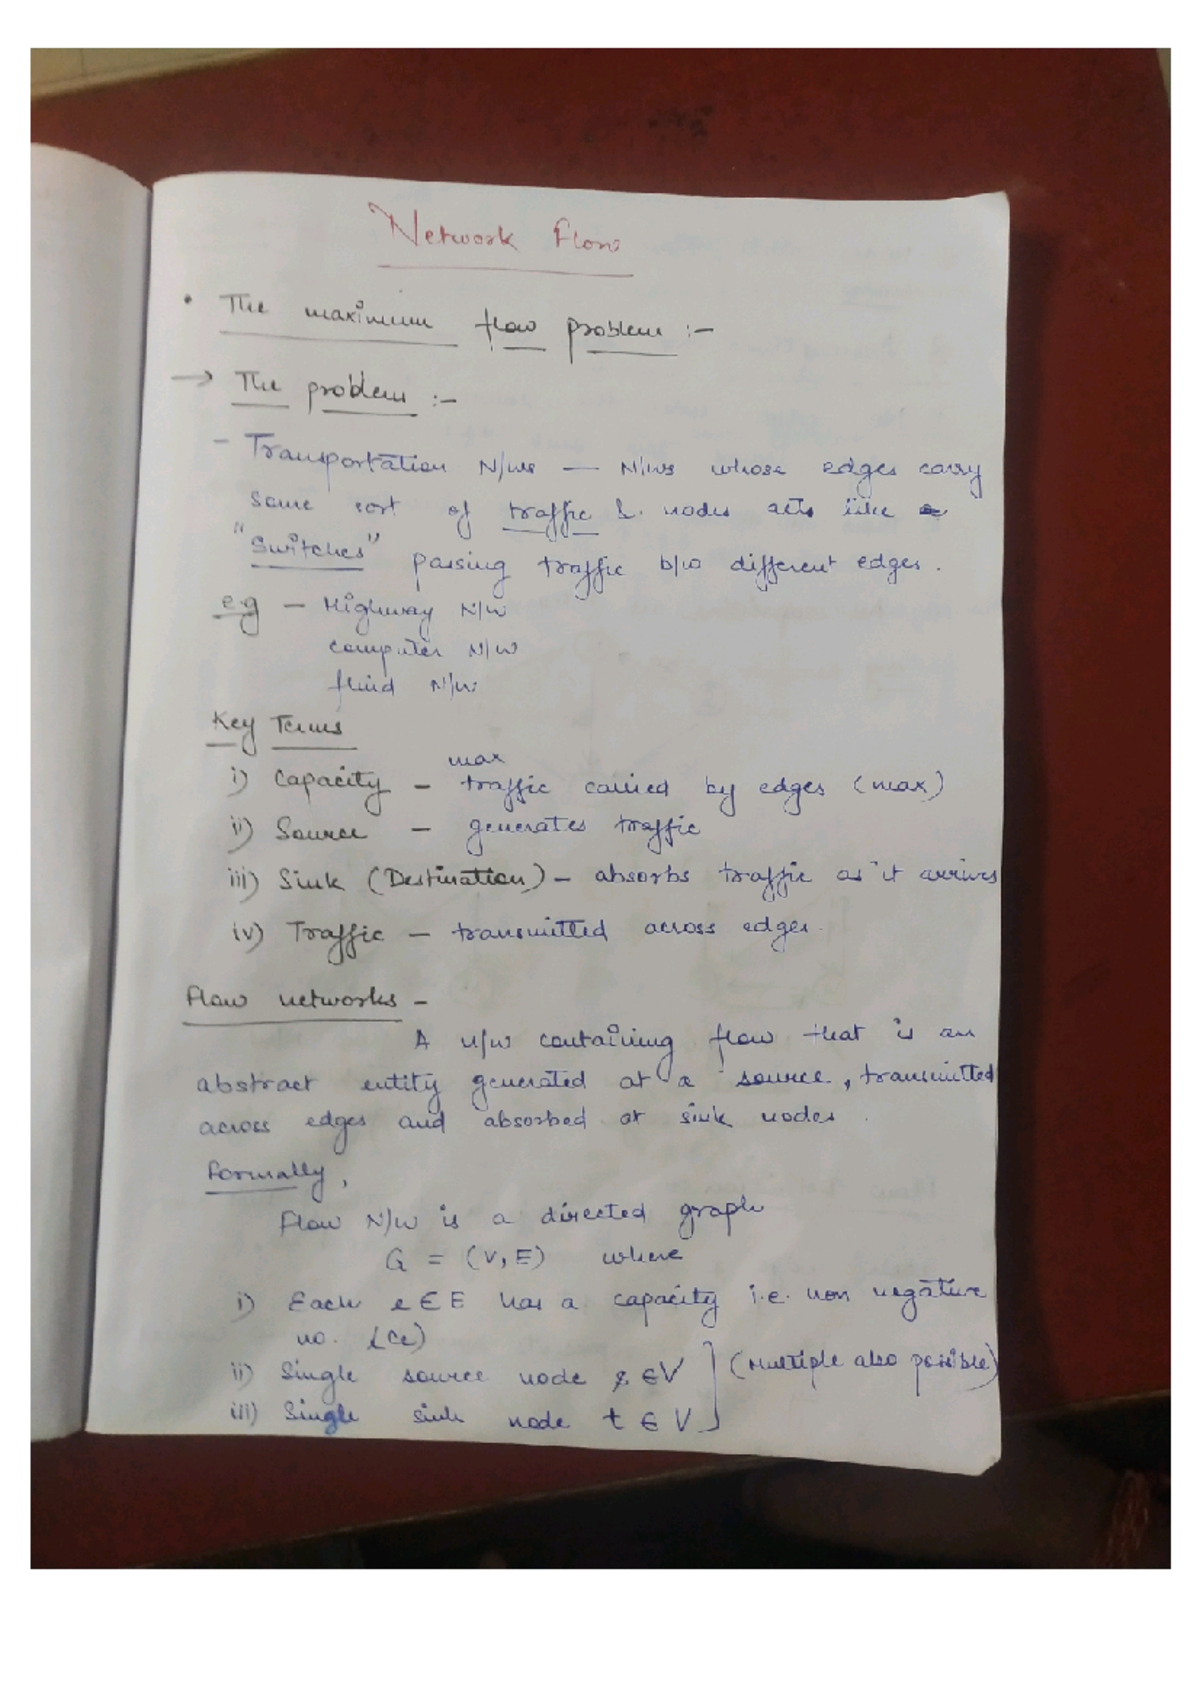 Network Flow
• The maximum flow problem :-
→ The problem :-
- Transportation N/ws — N/ws whose edges carry
some sort of traffic & nodes acts like
"Switches" passing traffic b/w different edges.
e.g — Highway N/W
computer N/W
fluid N/W
Key Terms
max
i) Capacity - traffic carried by edges (max)
ii) Source - generates traffic
iii) Sink (Destination) - absorbs traffic as it arrives
iv) Traffic - transmitted across edges.
Flow networks -
A n/w containing flow that is an
abstract entity generated at a source, transmitted
across edges and absorbed at sink nodes.
Formally,
Flow N/W is a directed graph
G = (V, E) where
i) Each e ∈ E has a capacity i.e. non negative
no. (Ce)
ii) Single source node s ∈ V
(Multiple also possible)
iii) Single sink node t ∈ V